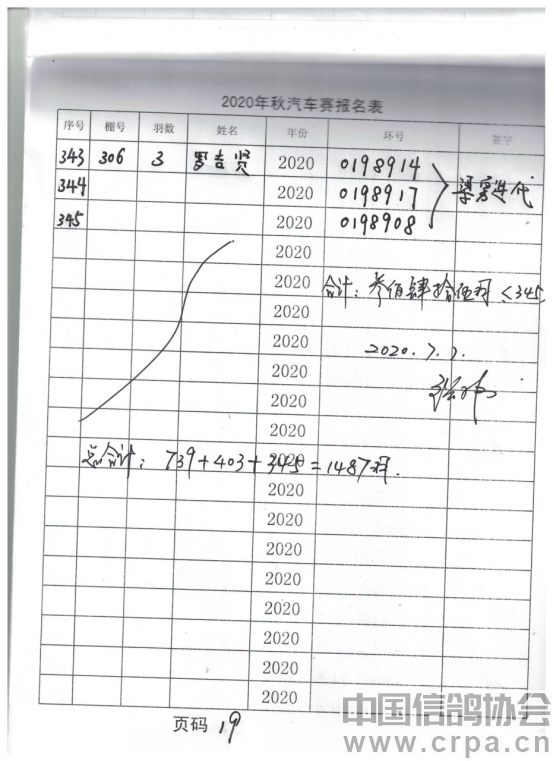 2020年秋汽车赛报名表
序号 棚号 羽数 姓名 年份 环号 签字
343 306 3 罗吉贤 2020 0198914
344 2020 0198917
345 2020 0198908
2020
2020 合计：叁佰肆拾伍羽 <345
2020
2020 2020.7.7.
2020
2020
2020
总合计：739+403+345=1487羽.
2020
2020
2020
2020
2020
2020
2020
2020
2020
页码 19
中国信鸽协会
www.crpa.cn